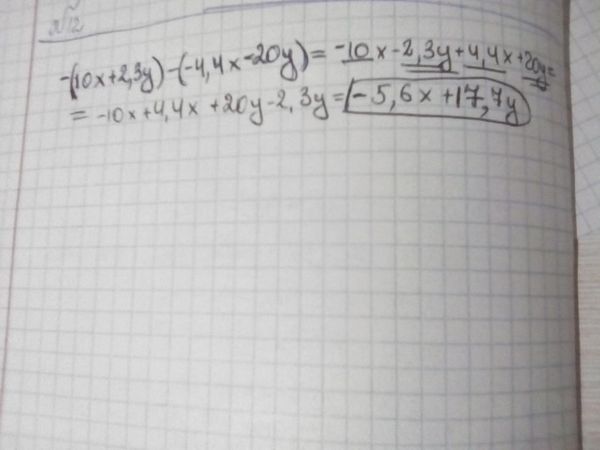 №12
-(10x+2,3y)-(-4,4x-20y)= -10x-2,3y+4,4x+20y=
= -10x+4,4x+20y-2,3y= -5,6x+17,7y